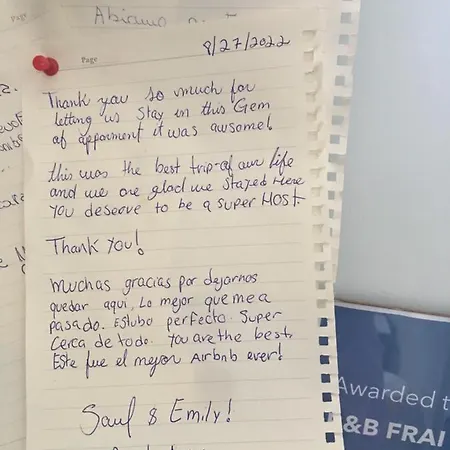 Page
8/27/2022
Page
Thank you so much for
letting us stay in this Gem
of apporment it was awsome!
this was the best trip of our life
and we are glad we stayed Here
You deserve to be a super HOST
Thank You!
Muchas gracias por dejarnos
quedar aqui. Lo mejor que me a
pasado. Estubo perfecto. Super
Cerca de todo. You are the best.
Este fue el mejor Airbnb ever!
Saul & Emily!
Awarded t
&B FRAI